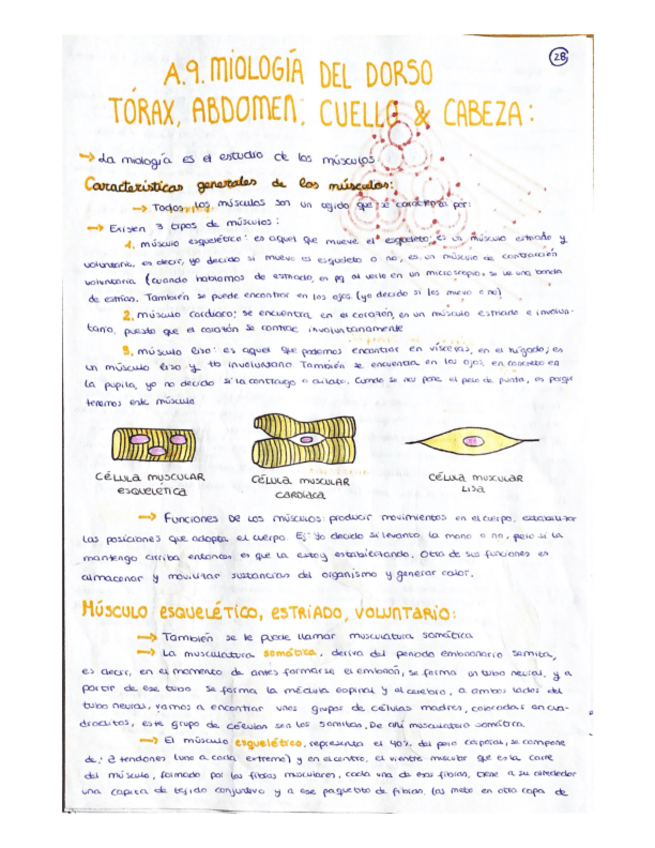 28
A.9. MIOLOGÍA DEL DORSO
TÓRAX, ABDOMEN, CUELLO & CABEZA:
→ La miología es el estudio de los músculos
Características generales de los músculos:
→ Todos los músculos son un tejido que se caracteriza por:
→ Existen 3 tipos de músculos:
1. músculo esquelético: es aquel que mueve el esqueleto: es un músculo estriado y
voluntario, es decir, yo decido si muevo el esqueleto o no, es un músculo de contracción
voluntaria (cuando hablamos de estriado, es pq al verlo en un microscopio, se ve una banda
de estrías. También se puede encontrar en los ojos (yo decido si los muevo o no)
2. músculo cardíaco: se encuentra en el corazón, es un músculo estriado e involun-
tario, puesto que el corazón se contrae involuntariamente
3. músculo liso: es aquel que podemos encontrar en vísceras, en el hígado; es
un músculo liso y tb involuntario. También se encuentra en los ojos, en concreto en
la pupila, yo no decido si la contraigo o dilato. Cuando se nos pone el pelo de punta, es porque
tenemos este músculo
CÉLULA MUSCULAR
ESQUELÉTICA
CÉLULA MUSCULAR
CARDÍACA
CÉLULA MUSCULAR
LISA
→ Funciones de los músculos: producir movimientos en el cuerpo, estabilizar
las posiciones que adopta el cuerpo. Ej: Yo decido si levanto la mano o no, pero si la
mantengo arriba entonces es que la estoy estabilizando. Otra de sus funciones es
almacenar y movilizar sustancias del organismo y generar calor.
MÚSCULO ESQUELÉTICO, ESTRIADO, VOLUNTARIO:
→ También se le puede llamar musculatura somática
→ La musculatura somática, deriva del periodo embrionario somita,
es decir, en el momento de antes formarse el embrión, se forma un tubo neural, y a
partir de ese tubo se forma la médula espinal y el cerebro, a ambos lados del
tubo neural, vamos a encontrar unos grupos de células madres, colocadas en cua-
draditos, este grupo de células son los somitas. De ahí musculatura somática.
→ El músculo esquelético, representa el 40% del peso corporal, se compone
de: 2 tendones (uno a cada extremo) y en el centro, el vientre muscular que es la carne
del músculo, formado por las fibras musculares, cada una de esas fibras, tiene a su alrededor
una capita de tejido conjuntivo y a ese paquetito de fibras, las meto en otra capa de